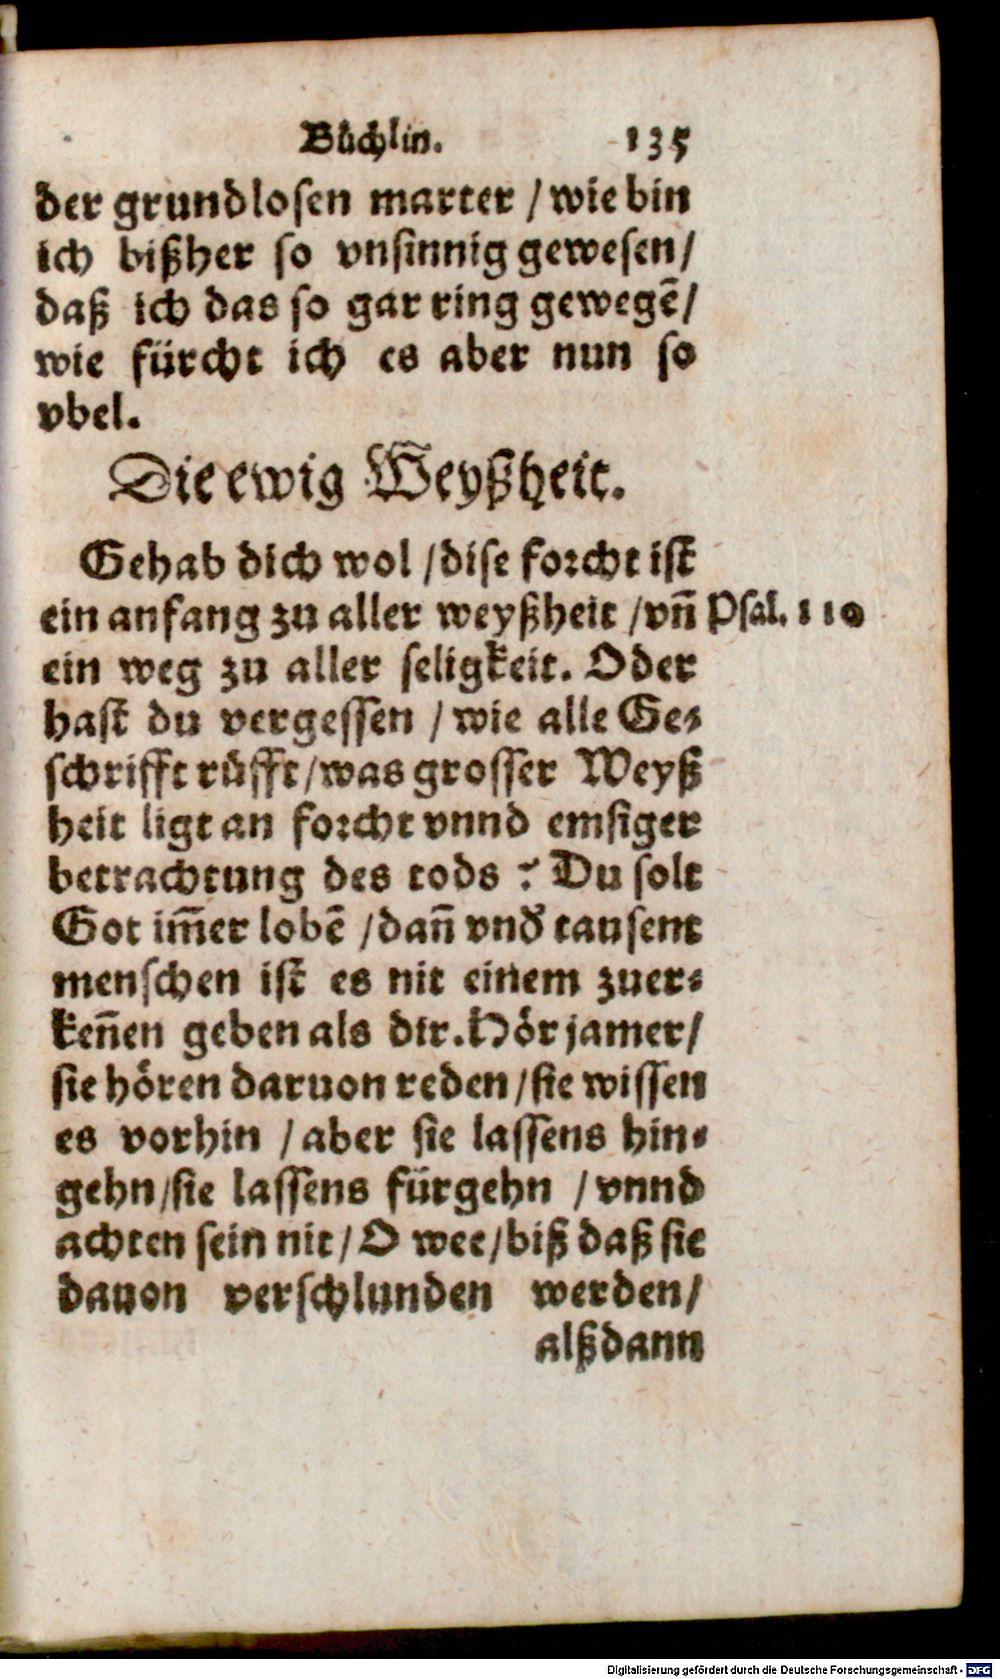 Bůchlin. 135
der grundlosen marter / wie bin
ich bißher so vnsinnig gewesen /
daß ich das so gar ring gewegē /
wie fürcht ich es aber nun so
vbel.
Die ewig Weyßheit.
Gehab dich wol / dise forcht ist
ein anfang zu aller weyßheit / vn̄ Psal. 110
ein weg zu aller seligkeit. Oder
hast du vergessen / wie alle Ge-
schrifft růfft / was grosser Weyß
heit ligt an forcht vnnd emsiger
betrachtung des tods ? Du solt
Got im̄er lobē / dan̄ vnď tausent
menschen ist es nit einem zuer-
ken̄en geben als dir. Hör jamer /
sie hören daruon reden / sie wissen
es vorhin / aber sie lassens hin-
gehn / sie lassens fürgehn / vnnd
achten sein nit / O wee / biß daß sie
dauon verschlunden werden /
alßdann
Digitalisierung gefördert durch die Deutsche Forschungsgemeinschaft - DFG